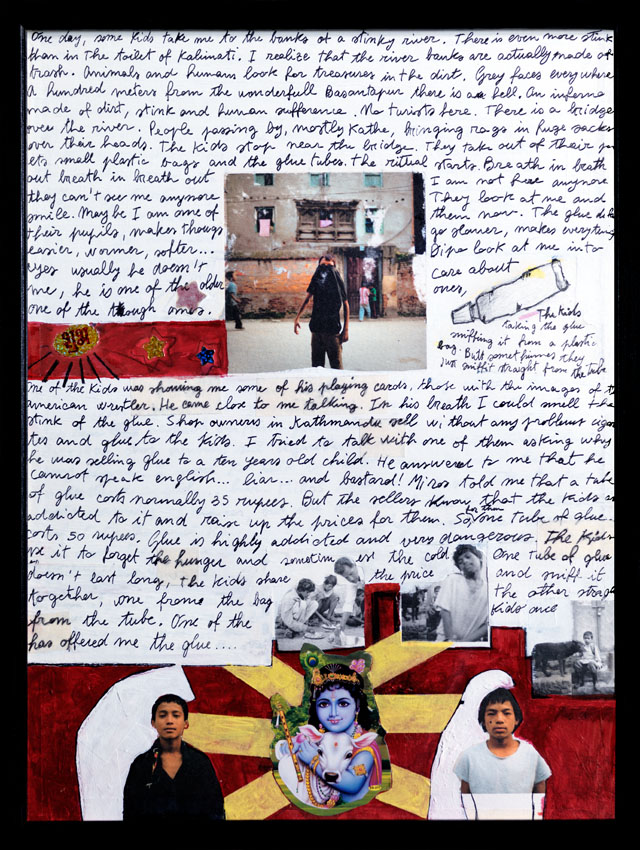 One day, some kids take me to the banks of a stinky river. There is even more stink
than in the toilet of Kalimati. I realize that the river banks are actually made of
trash. Animals and humans look for treasures in the dirt. Grey faces everywhere
A hundred meters from the wonderfull Basantapur there is a hell. An inferno
made of dirt, stink and human sufference. No turists here. There is a bridge
over the river. People passing by, mostly Kathe, bringing rags in huge sacks
over their heads. The kids stop near the bridge. They take out of their po
ets small plastic bags and the glue tubes. the ritual starts. Breath in breath
out breath in breath out
they can't see me anymore
smile. Maybe I am one of
their pupils, makes though
easier, wormer, softer...
yes usually he doesn't
me, he is one of the older
one of the though ones.
I am not free anymore
They look at me and
them now. The glue
go slower, makes everything
Dipa look at me into
care about
ones,
The kids
taking the glue
sniffing it from a plastic
bag. But sometimes they
just sniff it straight from the tube
One of the kids was showing me some of his playing cards, those with the images of t
american wrestler. He came close to me talking. In his breath I could smell the
stink of the glue. Shop owners in Kathmandu sell without any problem cigar
tes and glue to the kids. I tried to talk with one of them asking why
he was selling glue to a ten years old child. He answered to me that he
cannot speak english... liar... and bastard! Miros told me that a tube
of glue costs normally 35 rupees. But the sellers know that the kids a
addicted to it and raise up the prices for them. So, for them one tube of glue
costs 50 rupees. Glue is highly addicted and very dangerous. The kids
use it to forget the hunger and sometim es the cold. One tube of glue
doesn't last long, the kids share the price and sniff it
together, one frome the bag the other straigh
from the tube. One of the kids once
has offered me the glue....